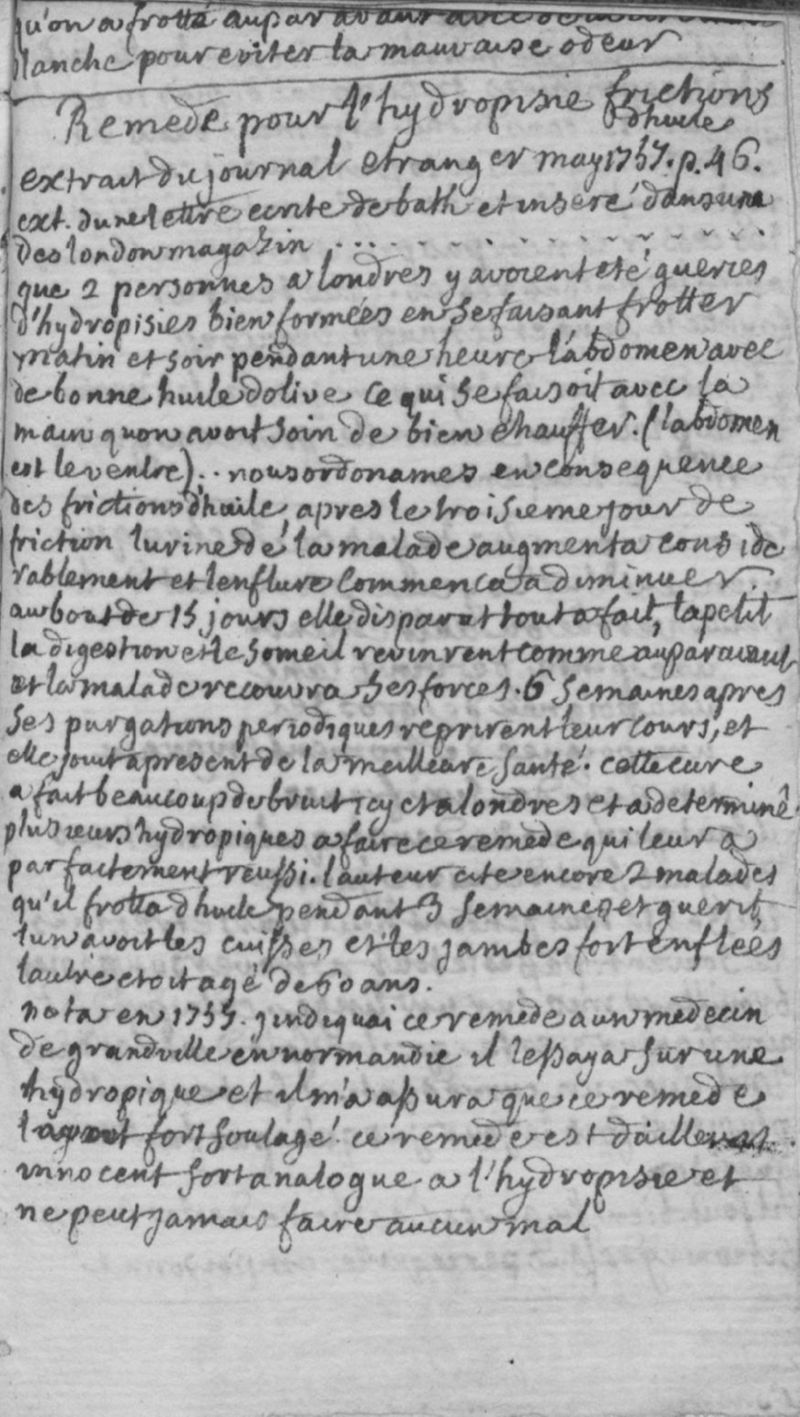 qu'on a frotté auparavant avec
planche pour eviter la mauvaise odeur
Remede pour l'hydropisie frictions
dhuile
extrait du journal etranger may 1757. p. 46.
ext. dune lettre ecrite de bath et inseré dans un
des london magazin ...............
que 2 personnes a londres y avoient eté gueries
d'hydropisies bien formées en se faisant frotter
matin et soir pendant une heure l'abdomen avec
de bonne huile dolive ce qui se faisoit avec la
main quon avoit soin de bien chauffer. (labdomen
est le ventre)... nous ordonames en consequence
des frictions dhuile, apres le troisieme jour de
friction lurine de la malade augmenta conside
rablement et lenflure commença a diminuer.
au bout de 15 jours elle disparut tout a fait, lapetit
la digestion et le someil revinrent comme auparavant
et la malade recouvra ses forces. 6 semaines apres
ses purgations periodiques reprirent leur cours, et
elle jouit apresent de la meilleure santé. cette cure
a fait beaucoup de bruit icy et a londres et a determiné
plusieurs hydropiques a faire ce remede qui leur a
parfaitement reussi. lauteur cite encore 2 malades
qu'il frotta dhuile pendant 3 semaines et guerit
lun avoit les cuisses et les jambes fort enflées
lautre etoit agé de 60 ans.
nota en 1757. jindiquai ce remede a un medecin
de grandville en normandie il lessaya sur une
hydropique et il m'a assura que ce remede
lavoit fort soulagé. ce remede est dailleurs
innocent fort analogue a l'hydropisie et
ne peut jamais faire aucun mal